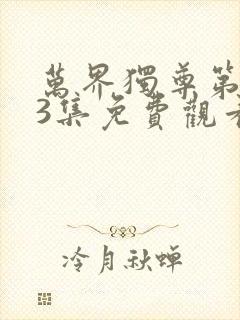 萬界獨尊第
3集免費觀看
冷月秋蟬